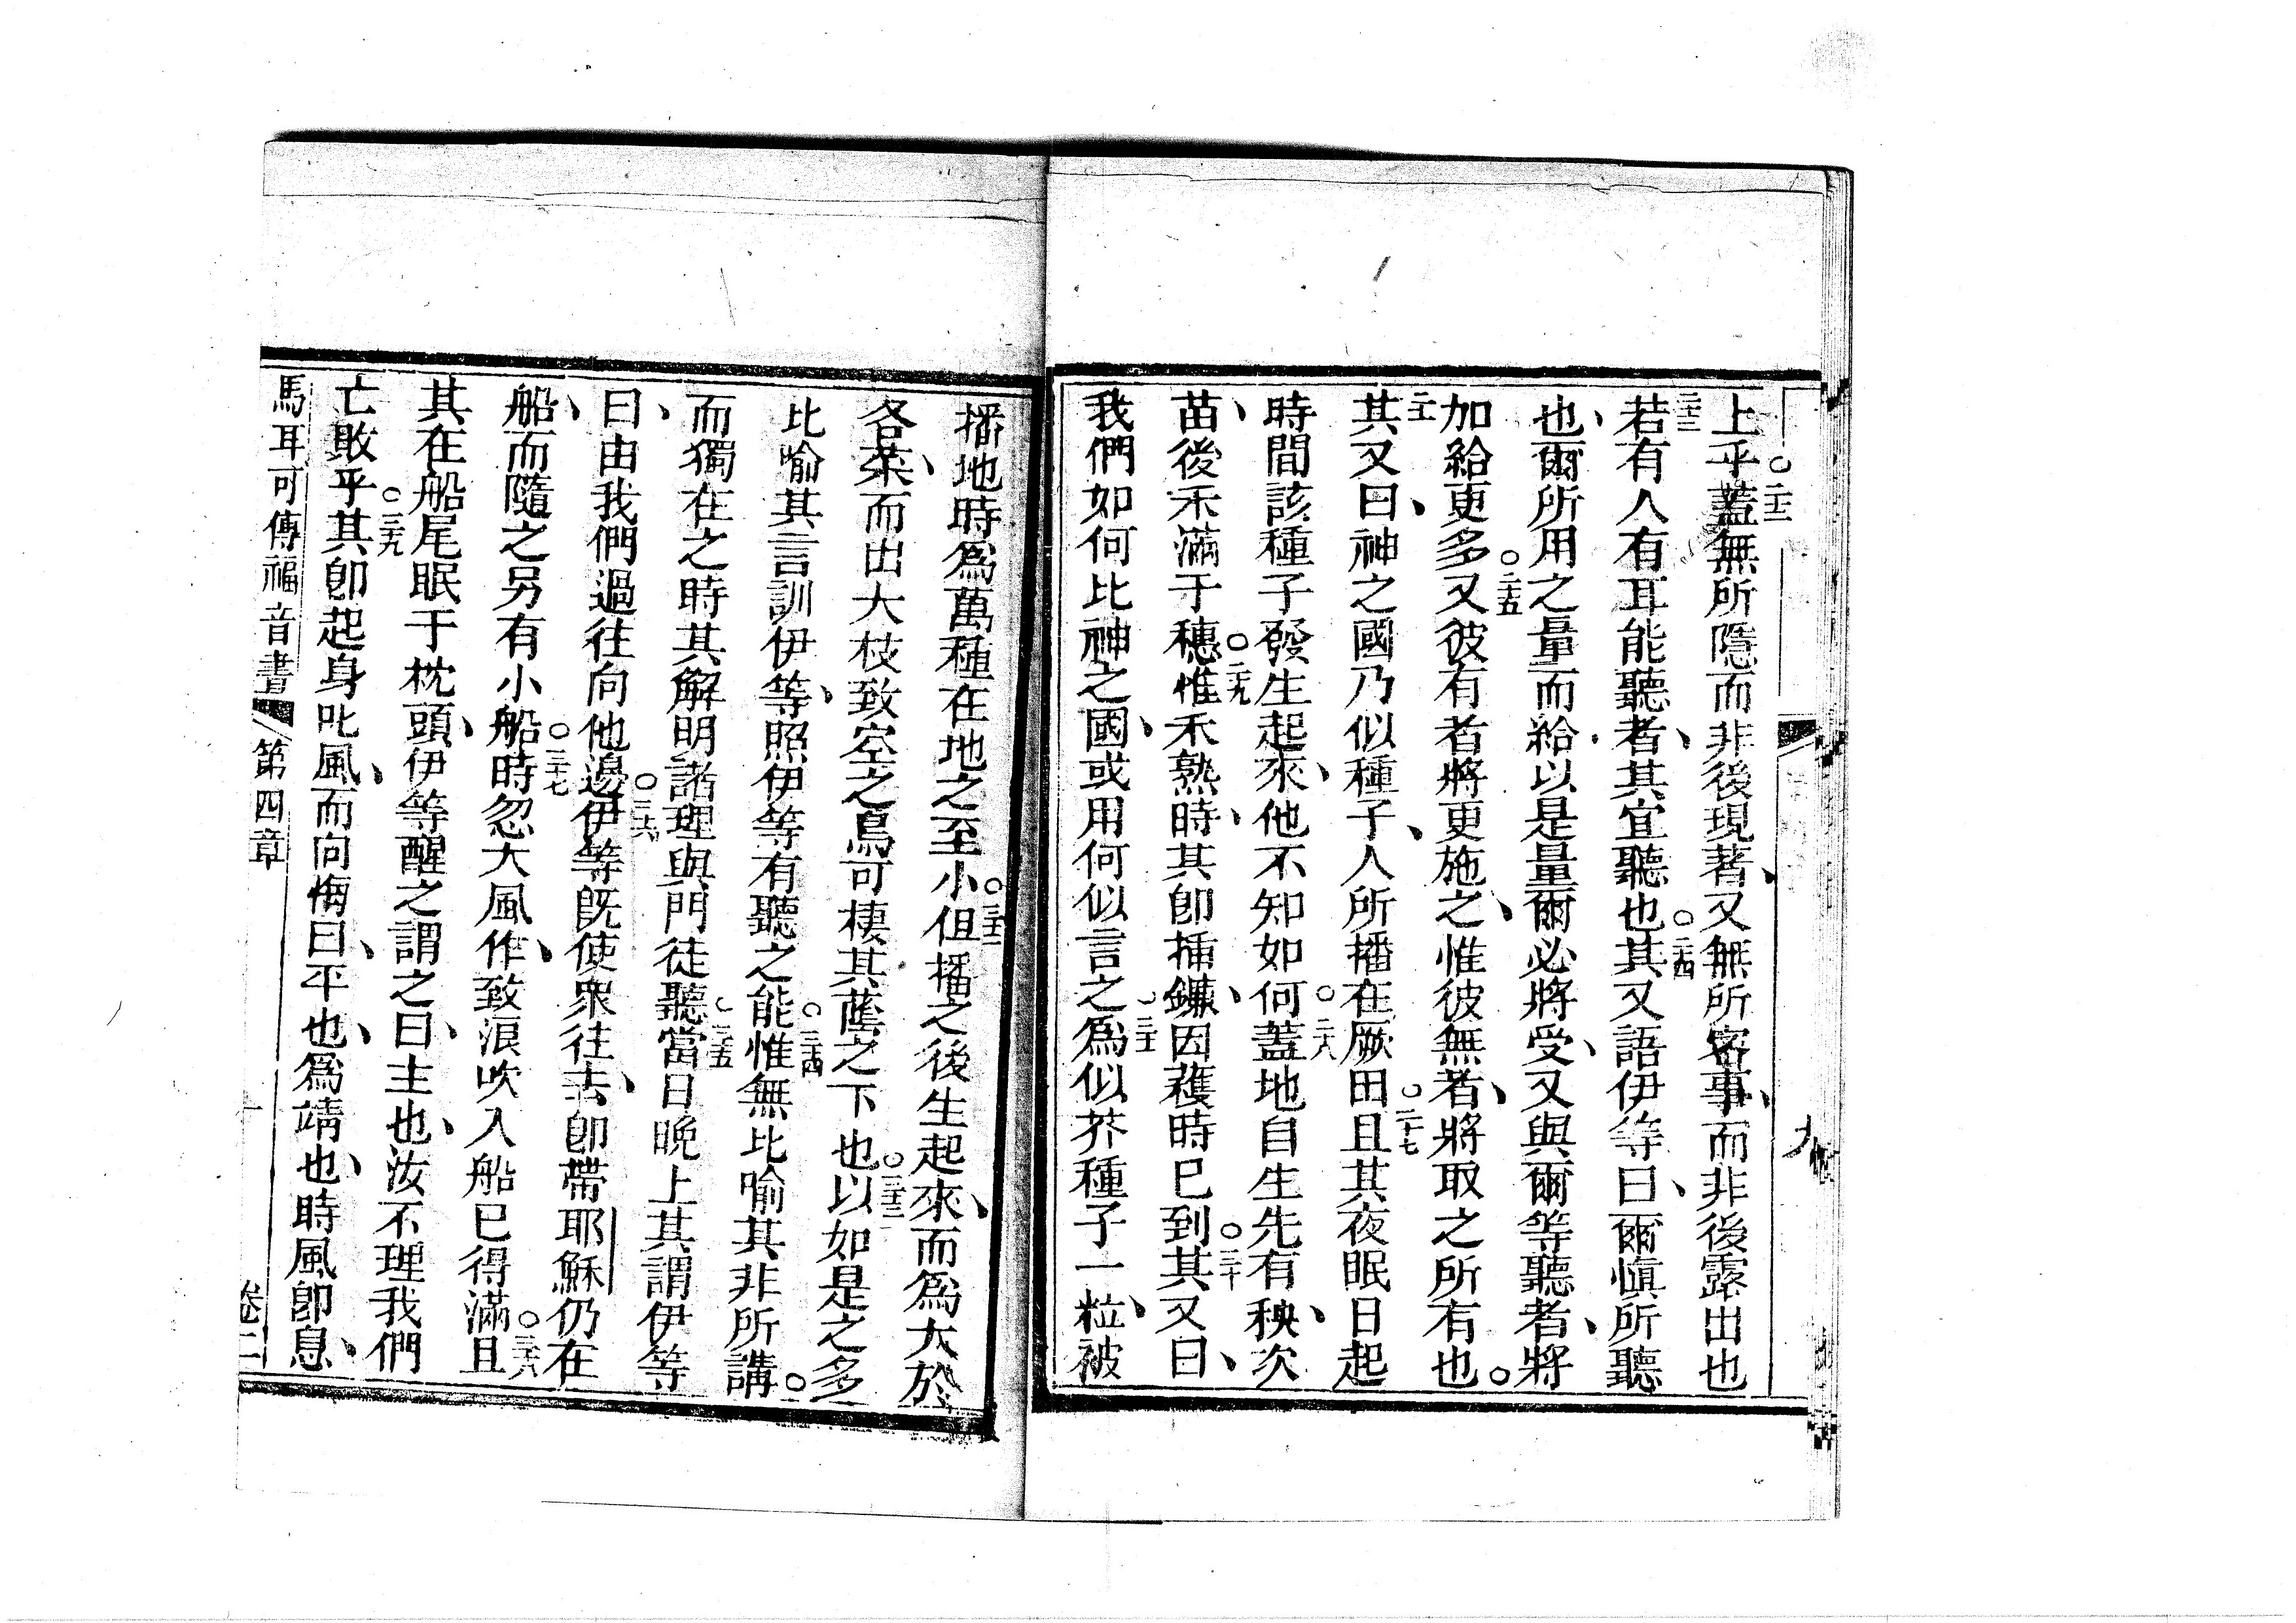 上乎○二十二蓋無所隱而非後現著、又無所密事、而非後露出也
二十三若有人有耳能聽者、其宜聽也○二十四其又語伊等曰、爾慎所聽
也、爾所用之量而給以是量爾必將受、又與爾等聽者、將
加給更多○二十五又彼有者將更施之、惟彼無者、將取之所有也。
二十六其又曰、神之國乃似種子、人所播在厥田○二十七且其夜眠日起
時間該種子發生起來、他不知如何○二十八蓋地自生先有秧、次
苗、後禾滿于穗○二十九惟禾熟時、其卽插鐮、因穫時已到○三十其又曰、
我們如何比神之國、或用何似言之○三十一爲似芥種子一粒、被
播地時爲萬種在地之至小○三十二但播之後生起來、而爲大於
各菜、而出大枝致空之鳥可棲其蔭之下也○三十三以如是之多
比喻其言訓伊等、照伊等有聽之能○三十四惟無比喻其非所講。
而獨在之時其解明諸理與門徒聽○三十五當日晚上其謂伊等
曰、由我們過往向他邊○三十六伊等旣使衆往去、卽帶耶穌仍在
船、而隨之另有小船○三十七時忽大風作、致浪吹入船已得滿○三十八且
其在船尾眠于枕頭、伊等醒之謂之曰、主也、汝不理我們
亡敗乎○三十九其卽起身叱風、而向海曰、平也、爲靖也、時風卽息、
馬耳可傳福音書 第四章 卷二
九